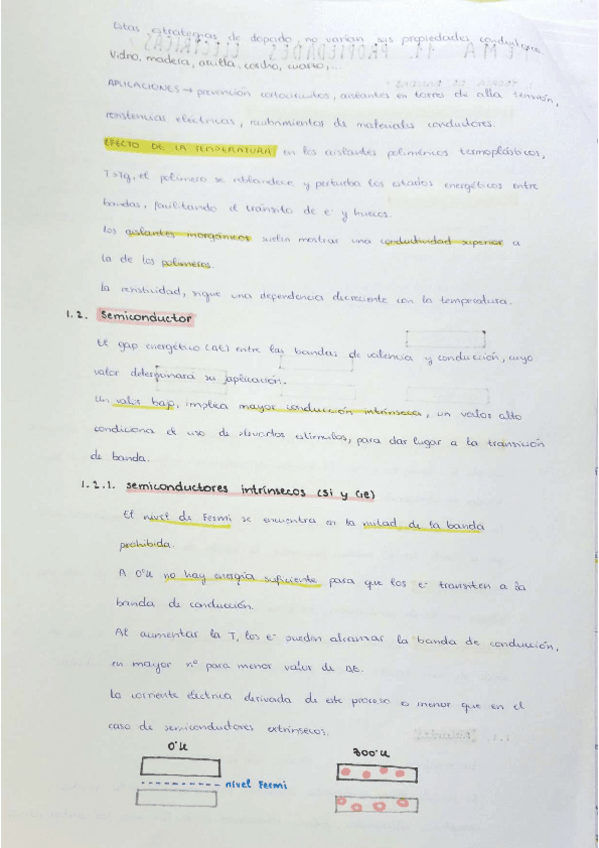 Estas estrategias de dopado, no varían sus propiedades conductoras
Vidrio, madera, arcilla, corcho, cuarzo,...
APLICACIONES → prevención cortocircuitos, aislantes en torres de alta tensión,
resistencias eléctricas, recubrimientos de materiales conductores.
EFECTO DE LA TEMPERATURA en los aislantes poliméricos termoplásticos,
T>Tg, el polímero se reblandece y perturba los estados energéticos entre
bandas, facilitando el tránsito de e⁻ y huecos.
Los aislantes inorgánicos suelen mostrar una conductividad superior a
la de los polímeros.
La resistividad, sigue una dependencia decreciente con la temperatura.
1.2. Semiconductor
El gap energético (ΔE) entre las bandas de valencia y conducción, cuyo
valor determinará su aplicación.
Un valor bajo, implica mayor conducción intrínseca, un valor alto
condiciona el uso de elevados estímulos, para dar lugar a la transición
de banda.
1.2.1. Semiconductores intrínsecos (Si y Ge)
El nivel de Fermi se encuentra en la mitad de la banda
prohibida.
A 0ºK no hay energía suficiente para que los e⁻ transiten a la
banda de conducción.
Al aumentar la T, los e⁻ pueden alcanzar la banda de conducción,
en mayor nº para menor valor de ΔE.
La corriente eléctrica derivada de este proceso es menor que en el
caso de semiconductores extrínsecos.
0ºK 300ºK
nivel Fermi